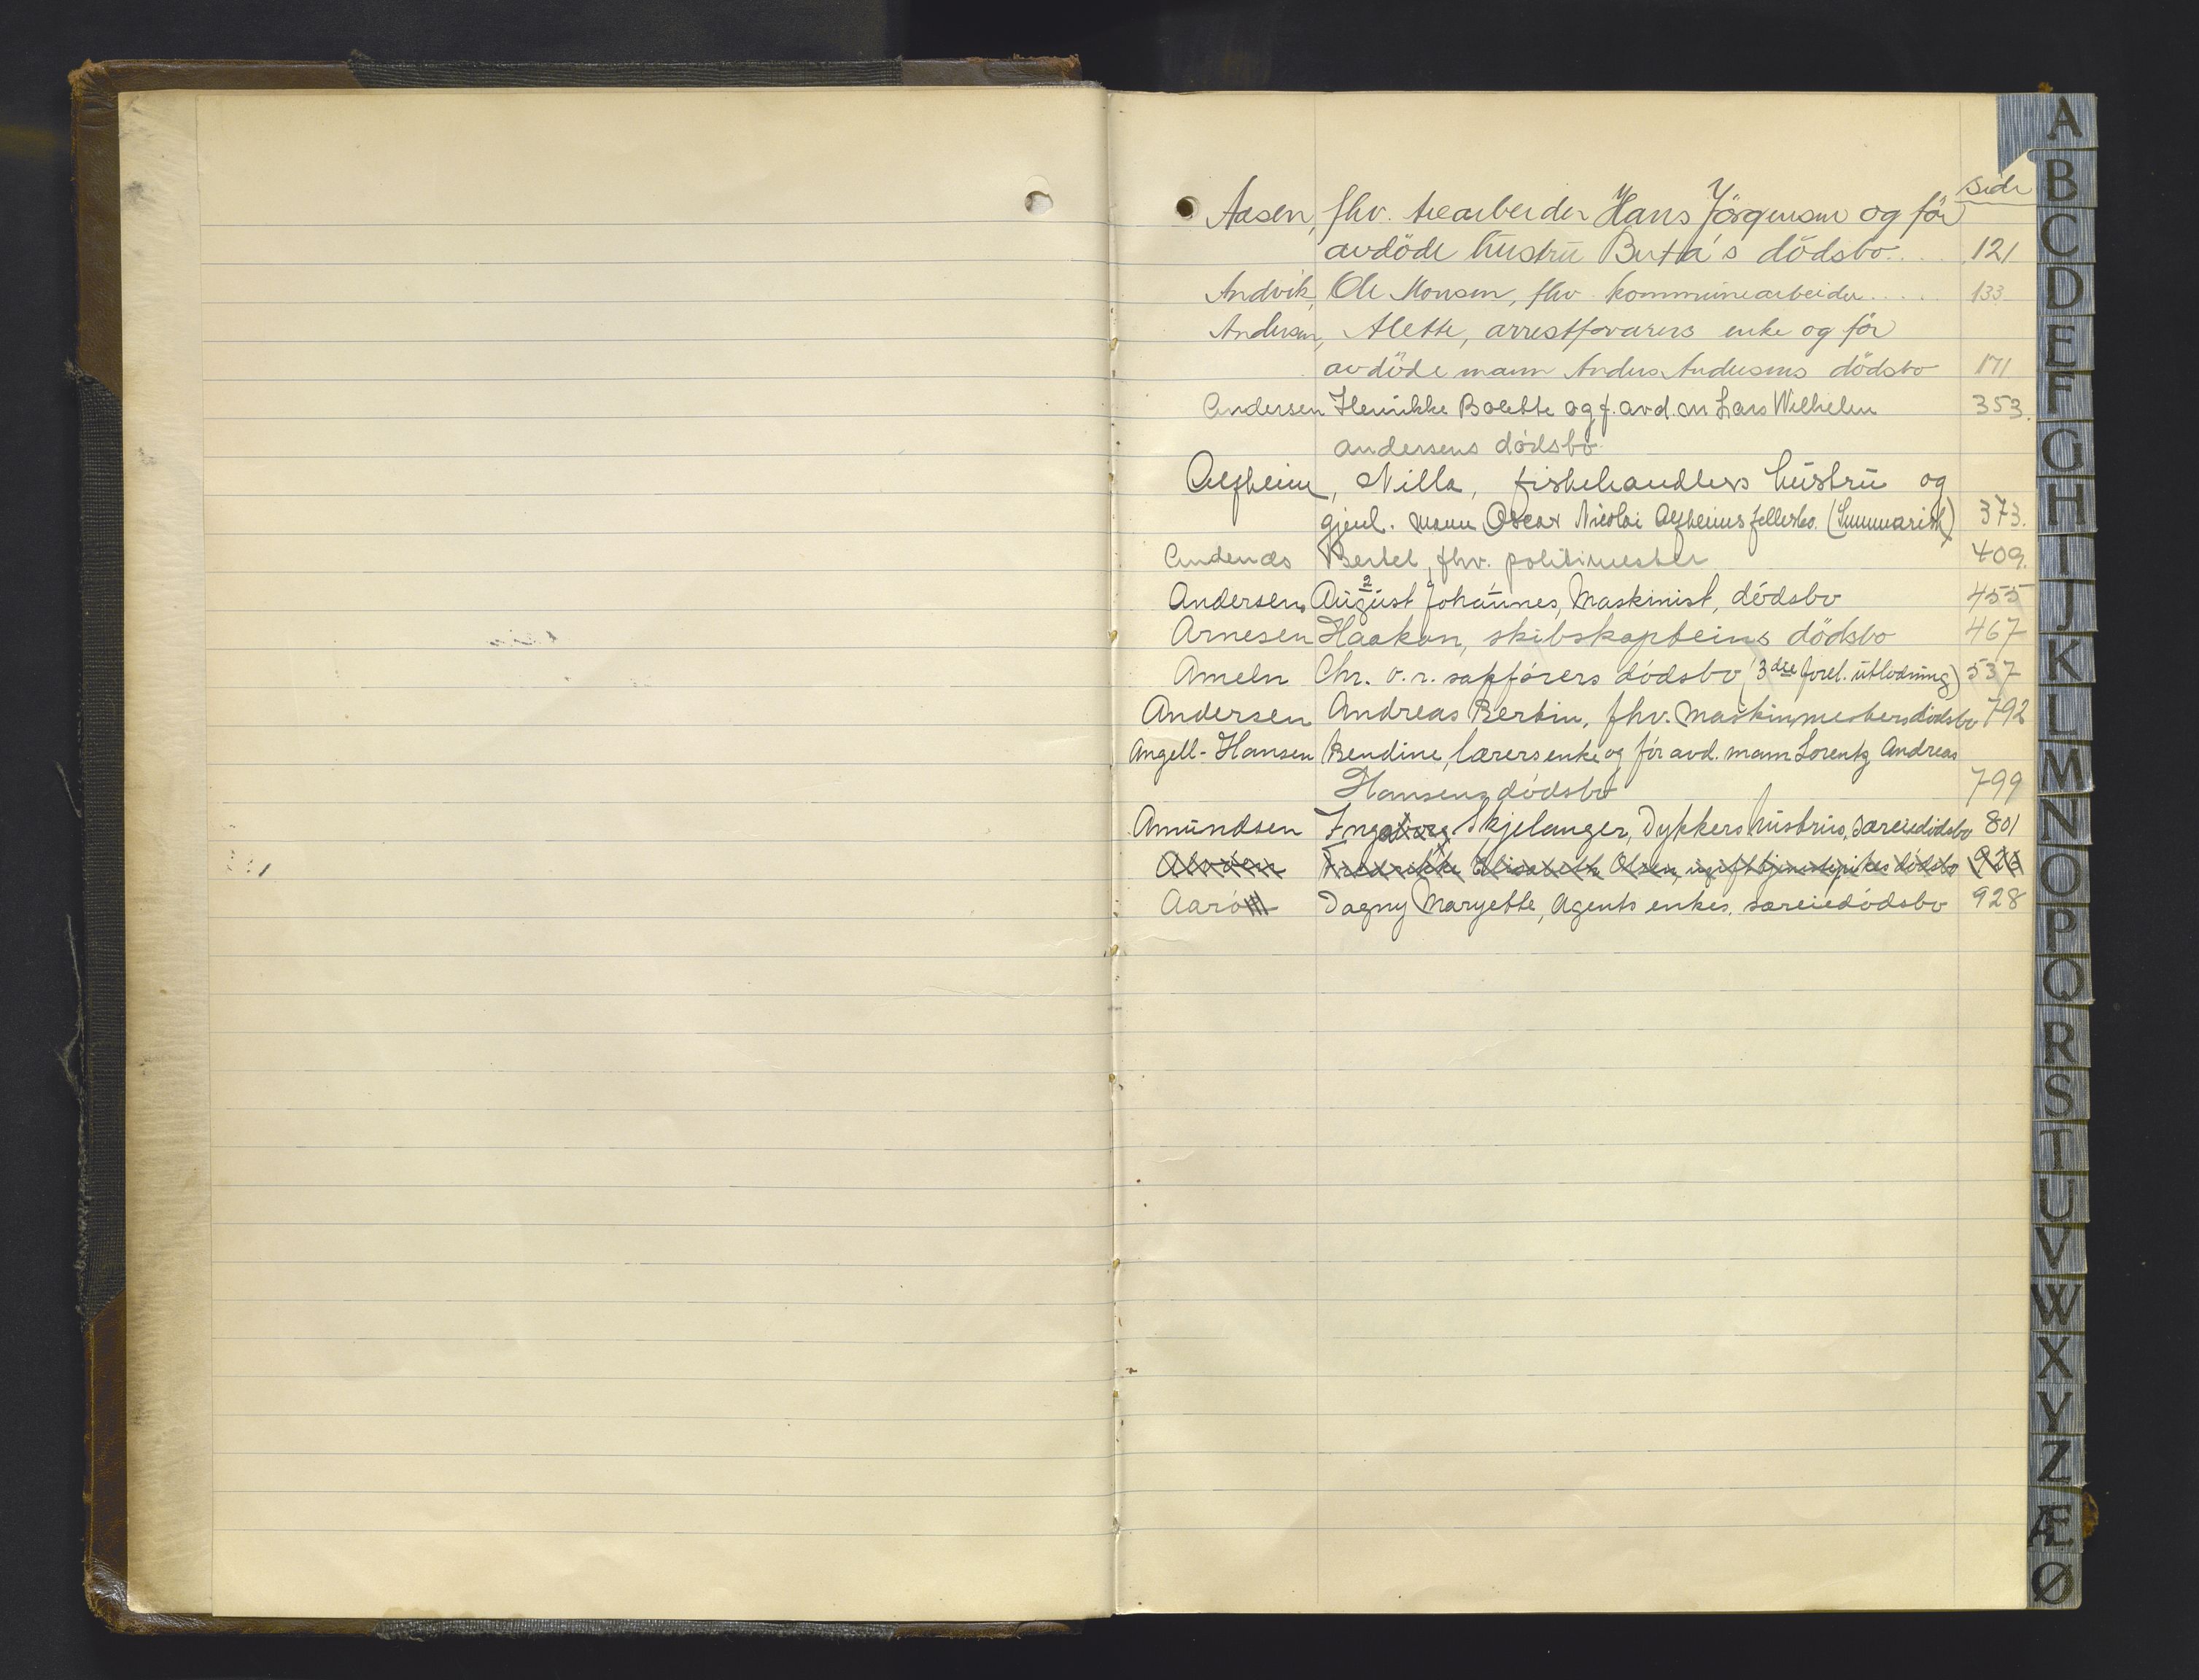 side
Aasen, fhv. trearbeider Hans Jörgensen og för
avdöde hustru Berta's dödsbo.... 121
Andvik, Ole Monsen, fhv. kommunearbeider..... 133
Andersen, Alette, arrestforvarers enke og för
avdöde mann Anders Andersens dödsbo 171
Andersen Henrikke Bolette og f. avd. m Lars Wilhelm 353.
Andersens dödsbo
Alfheim, Nilla, fiskehandlers hustru og
gjenl. mann Oscar Nicolai Alfheims fellesbo. (Summarisk) 373.
Andenæs Bertel, fhv. politimester 409.
Andersen, August 2 Johannes, Maskinist, dödsbo 455
Arnesen Haakon, skibskapteins dödsbo 467
Ameln Chr. o.r. sakförers dödsbo (3dre forel. utlodning) 537
Andersen Andreas Bertin, fhv. maskinmesters dödsbo 792
Angell-Hansen Bendine, lærersenke og för avd. mann Lorentz Andreas
Hansens dödsbo 799
Amundsen Inga Skjelanger, Dykkers hustrus, særeiedödsbo 801
Fredrikke Elisabeth Olsen, dödsbo
Aarö Dagny Maryette, Agents enkes, særeiedödsbo 928
A
B
C
D
E
F
G
H
I
J
K
L
M
N
O
P
Q
R
S
T
U
V
W
X
Y
Z
Æ
Ø